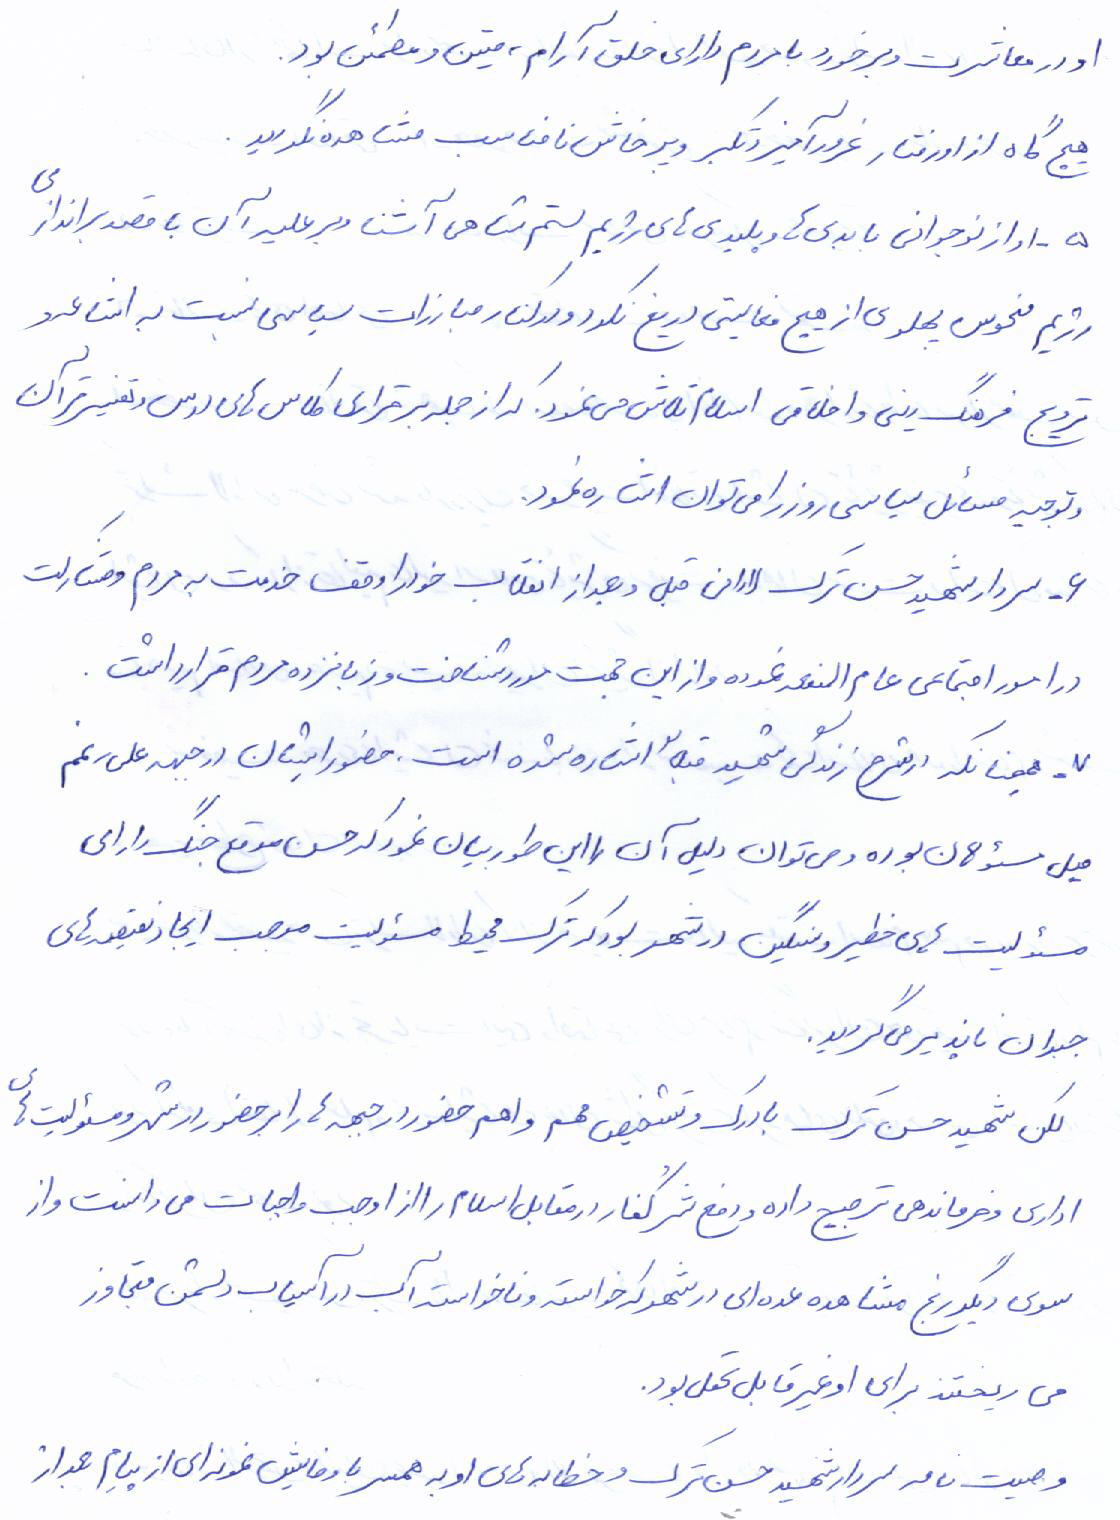 او در معاشرت و برخورد با مردم دارای خلق آرام، متین و مطمئن بود.
هیچ گاه از او رفتار غرورآمیز و تکبر و پرخاش نامناسب مشاهده نگردید.
۵- او از نوجوانی با بدی ها و پلیدی های رژیم ستم شاهی آشنا و بر علیه آن با قصد براندازی
رژیم منحوس پهلوی از هیچ فعالیتی دریغ نکرد و در کنار مبارزات سیاسی نسبت به اشاعه و
ترویج فرهنگ دینی و اخلاقی اسلام تلاش می نمود. که از جمله برقراری کلاس های درس و تفسیر قرآن
و توجیه مسائل سیاسی روز را می توان اشاره نمود.
۶- سردار شهید حسن ترک لادانی قبل و بعد از انقلاب خود را وقف خدمت به مردم و مشارکت
در امور اجتماعی عام المنفعه نموده و از این جهت مورد شناخت و زبانزده مردم قرار داشت.
۷- همچنانکه در شرح زندگی شهید قبلاً اشاره شده است، حضور ایشان در جبهه علی رغم
میل مسئولان بوده و می توان دلیل آن را این طور بیان نمود که حسن موقع جنگ دارای
مسئولیت های خطیر و سنگین در شهر بود که ترک محیط مسئولیت موجب ایجاد نقیصه های
جبران ناپذیر می گردید.
لکن شهید حسن ترک با درک و تشخیص مهم و اهم حضور در جبهه ها را بر حضور در شهر و مسئولیت های
اداری و فرماندهی ترجیح داده و دفع شر کفار در مقابل اسلام را از اوجب واجبات می دانست و از
سوی دیگر رنج مشاهده عده ای در شهر که خواسته و ناخواسته آب در آسیاب دشمن متجاوز
می ریختند برای او غیر قابل تحمل بود.
وصیت نامه سردار شهید حسن ترک و خطابه های او به همسر با وفایش نمونه ای از پیام بعد از